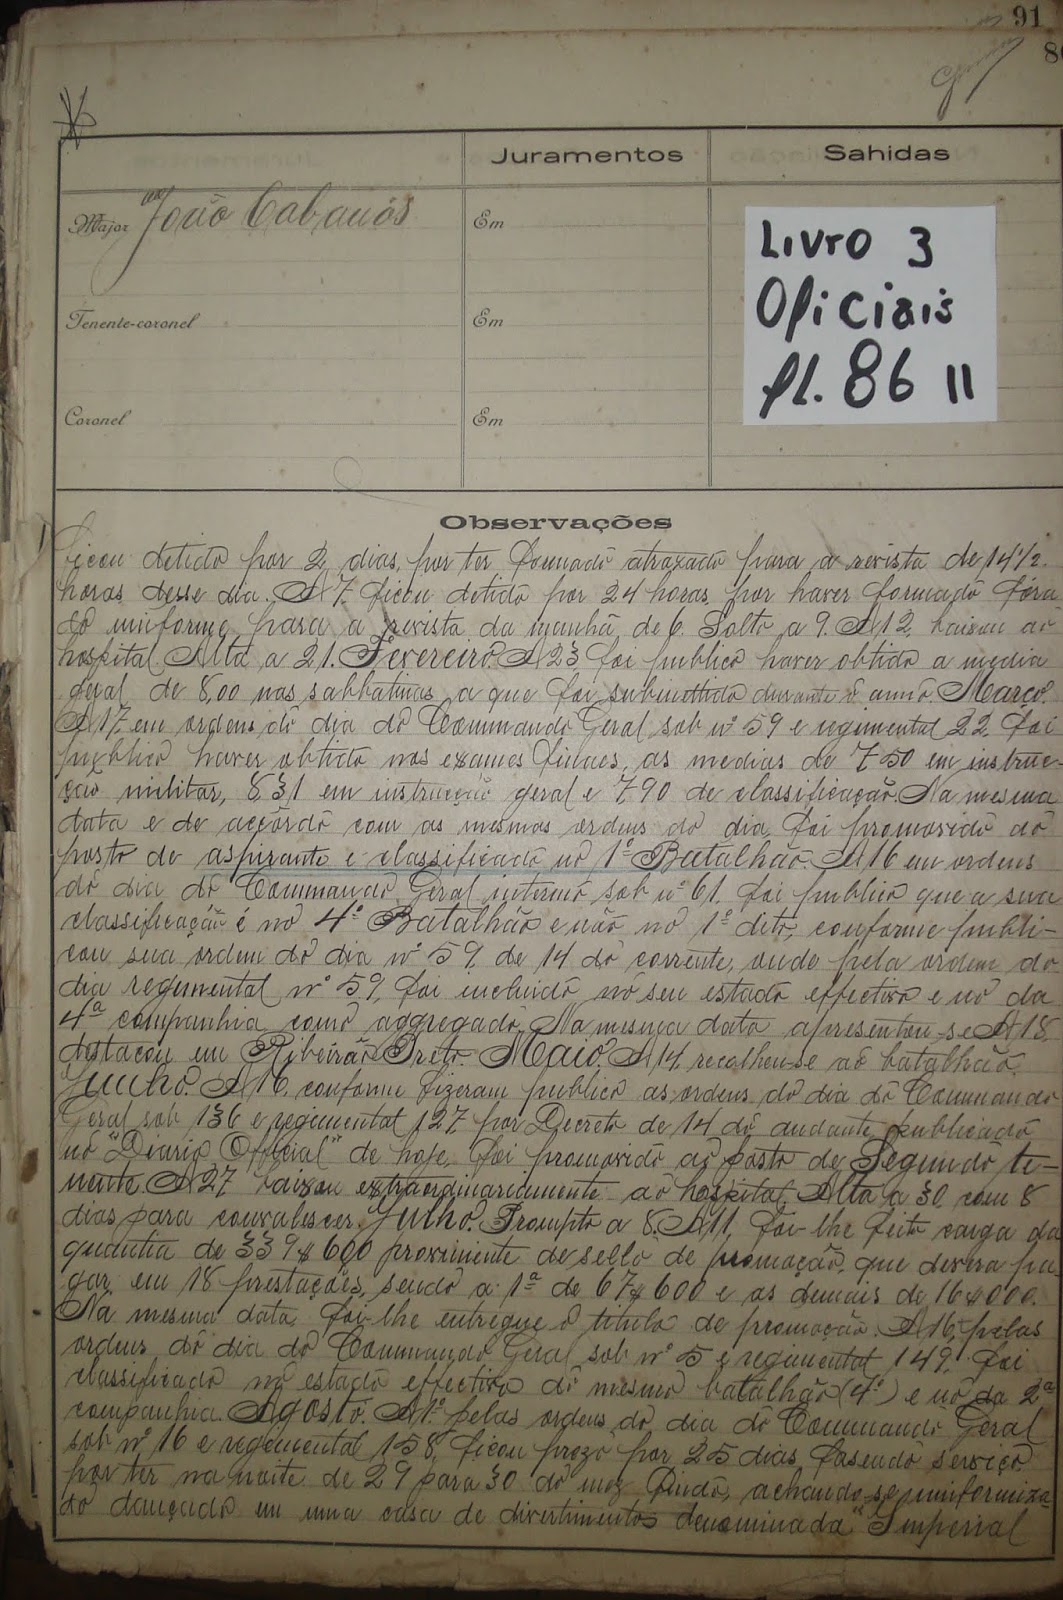 91
86
Juramentos
Sahidas
Major João Cabanás
Em
Livro 3
Oficiais
fl. 86 II
Tenente-coronel
Em
Coronel
Em
Observações
ficou detido por 2 dias por ter formado atrazado para a revista de 14 1/2
horas desse dia. A 7 ficou detido por 24 horas por haver formado fóra
do uniforme para a revista da manhã de 6. Solto a 9. A 12, baixou ao
hospital. Alta a 21. Fevereiro. A 23, foi publico haver obtido a media
geral de 8,00 nas sabbatinas a que foi submettido durante o anno. Março.
A 17 em ordens do dia do Commando Geral sob nº 59 e regimental 22, foi
publico haver obtido nos exames finaes, as medias de 7 50 em instruc-
ção militar, 8,31 em instrucção geral e 7 90 de classificação. Na mesma
data e de accôrdo com as mesmas ordens do dia, foi promovido do
posto de aspirante e classificado no 1º Batalhão. A 16 em ordens
do dia do Commando Geral interno sob nº 61, foi publico que a sua
classificação é no 4º Batalhão e não no 1º dito, conforme publi-
cou sua ordem do dia nº 59, de 14 do corrente, onde pela ordem do
dia regimental nº 59, foi incluido no seu estado effectivo e no da
4ª companhia como aggregado. Na mesma data apresentou-se. A 18,
destacou em Ribeirão Preto. Maio. A 14, recolheu-se ao batalhão.
Junho. A 16, conforme fizeram publico as ordens do dia do Commando
Geral sob 136 e regimental 127 por Decreto de 14 do andante, publicado
no "Diario Official" de hoje, foi promovido ao posto de Segundo te-
nente. A 27 baixou extraordinariamente ao hospital. Alta a 30 com 8
dias para convalescer. Julho. Prompto a 8. A 11, foi-lhe feito carga da
quantia de 339$600 proveniente de sello de promoção, que deverá pa
gar em 18 prestações, sendo a 1ª de 67$600 e as demais de 16$000.
Na mesma data foi-lhe entregue o titulo de promoção. A 16, pelas
ordens do dia do Commando Geral sob nº 5 e regimental 149, foi
classificado no estado effectivo do mesmo batalhão (4º) e no da 2ª
companhia. Agosto. A 1º pelas ordens do dia do Commando Geral
sob nº 16 e regimental 158, ficou prezo por 25 dias, fasendo serviço
por ter na noite de 29 para 30 do mez findo, achando-se uniformiza-
do dançado em uma casa de divertimentos denominada "Imperial